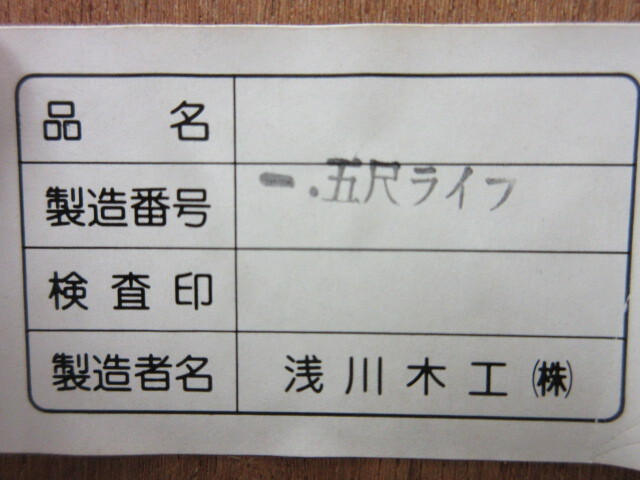 品名
製造番号 一.五尺ライフ
検査印
製造者名 浅川木工㈱